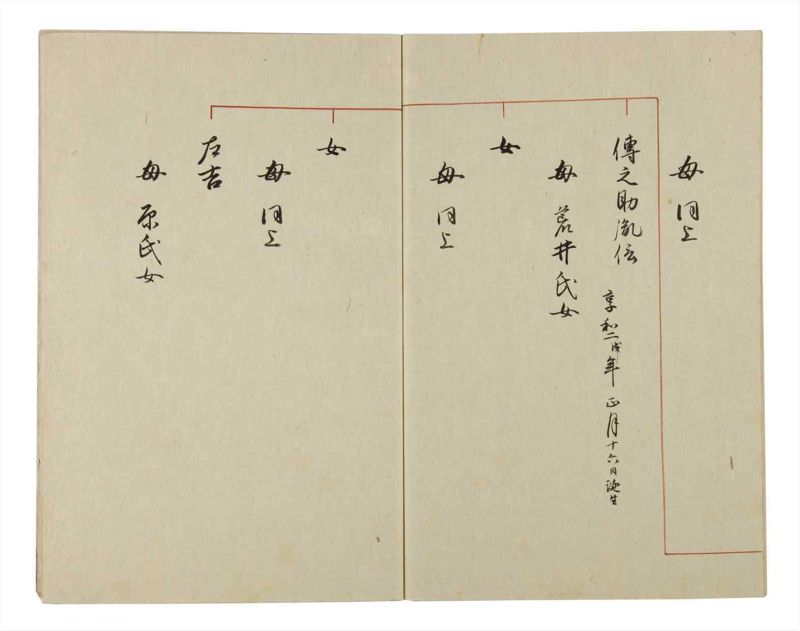 母 同上
傳之助胤信
享和二戌年 正月十六日誕生
母 荒井氏女
女
母 同上
女
母 同上
左吉
母 原氏女